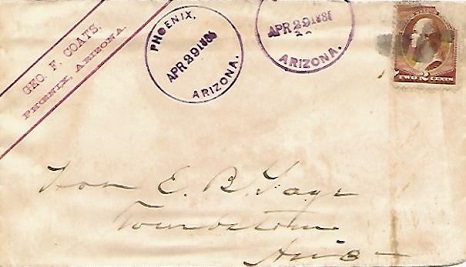 GEO. F. COATS,
PHOENIX, ARIZONA.
PHOENIX,
APR 29 1886
ARIZONA.
APR 29 188
ARIZONA.
TWO 2 CENTS
Hon E. B. Gage
Tombstone
Ariz